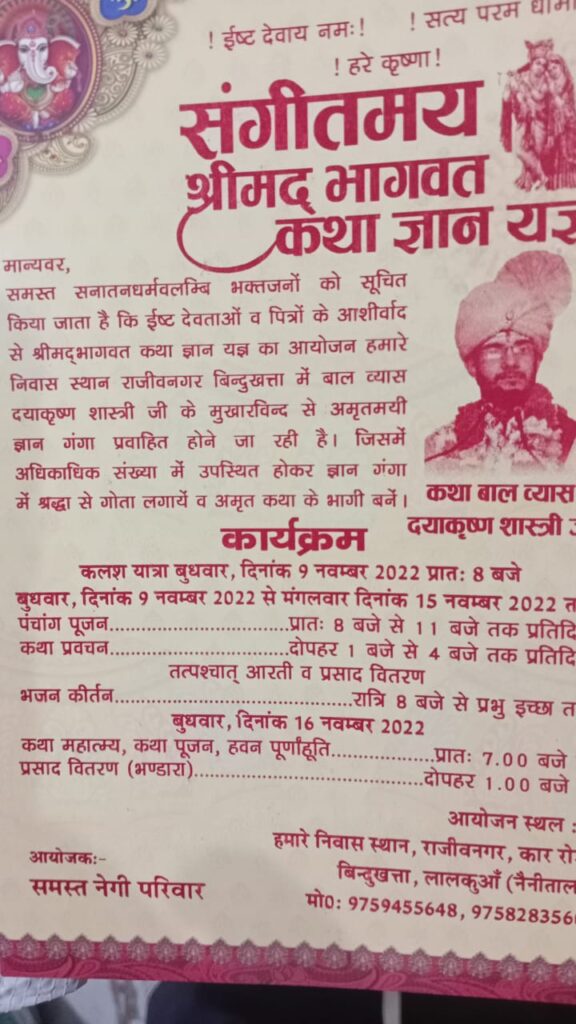 ! ईष्ट देवाय नमः! ! सत्य परम धाम
! हरे कृष्णा!
संगीतमय
श्रीमद् भागवत
कथा ज्ञान यज्ञ
मान्यवर,
समस्त सनातनधर्मवलम्बि भक्तजनों को सूचित
किया जाता है कि ईष्ट देवताओं व पित्रों के आशीर्वाद
से श्रीमद्भागवत कथा ज्ञान यज्ञ का आयोजन हमारे
निवास स्थान राजीवनगर बिन्दुखत्ता में बाल व्यास
दयाकृष्ण शास्त्री जी के मुखारविन्द से अमृतमयी
ज्ञान गंगा प्रवाहित होने जा रही है। जिसमें
अधिकाधिक संख्या में उपस्थित होकर ज्ञान गंगा
में श्रद्धा से गोता लगायें व अमृत कथा के भागी बनें।
कथा बाल व्यास
दयाकृष्ण शास्त्री
कार्यक्रम
कलश यात्रा बुधवार, दिनांक 9 नवम्बर 2022 प्रातः 8 बजे
बुधवार, दिनांक 9 नवम्बर 2022 से मंगलवार दिनांक 15 नवम्बर 2022 त
पंचांग पूजन..............................प्रातः 8 बजे से 11 बजे तक प्रतिदि
कथा प्रवचन..............................दोपहर 1 बजे से 4 बजे तक प्रतिदि
तत्पश्चात् आरती व प्रसाद वितरण
भजन कीर्तन........................................रात्रि 8 बजे से प्रभु इच्छा त
बुधवार, दिनांक 16 नवम्बर 2022
कथा महात्म्य, कथा पूजन, हवन पूर्णांहूति.................प्रातः 7.00 बजे
प्रसाद वितरण (भण्डारा)......................................दोपहर 1.00 बजे
आयोजन स्थल :
हमारे निवास स्थान, राजीवनगर, कार रो
बिन्दुखत्ता, लालकुआँ (नैनीताल
मो0: 9759455648, 975828356
आयोजकः-
समस्त नेगी परिवार